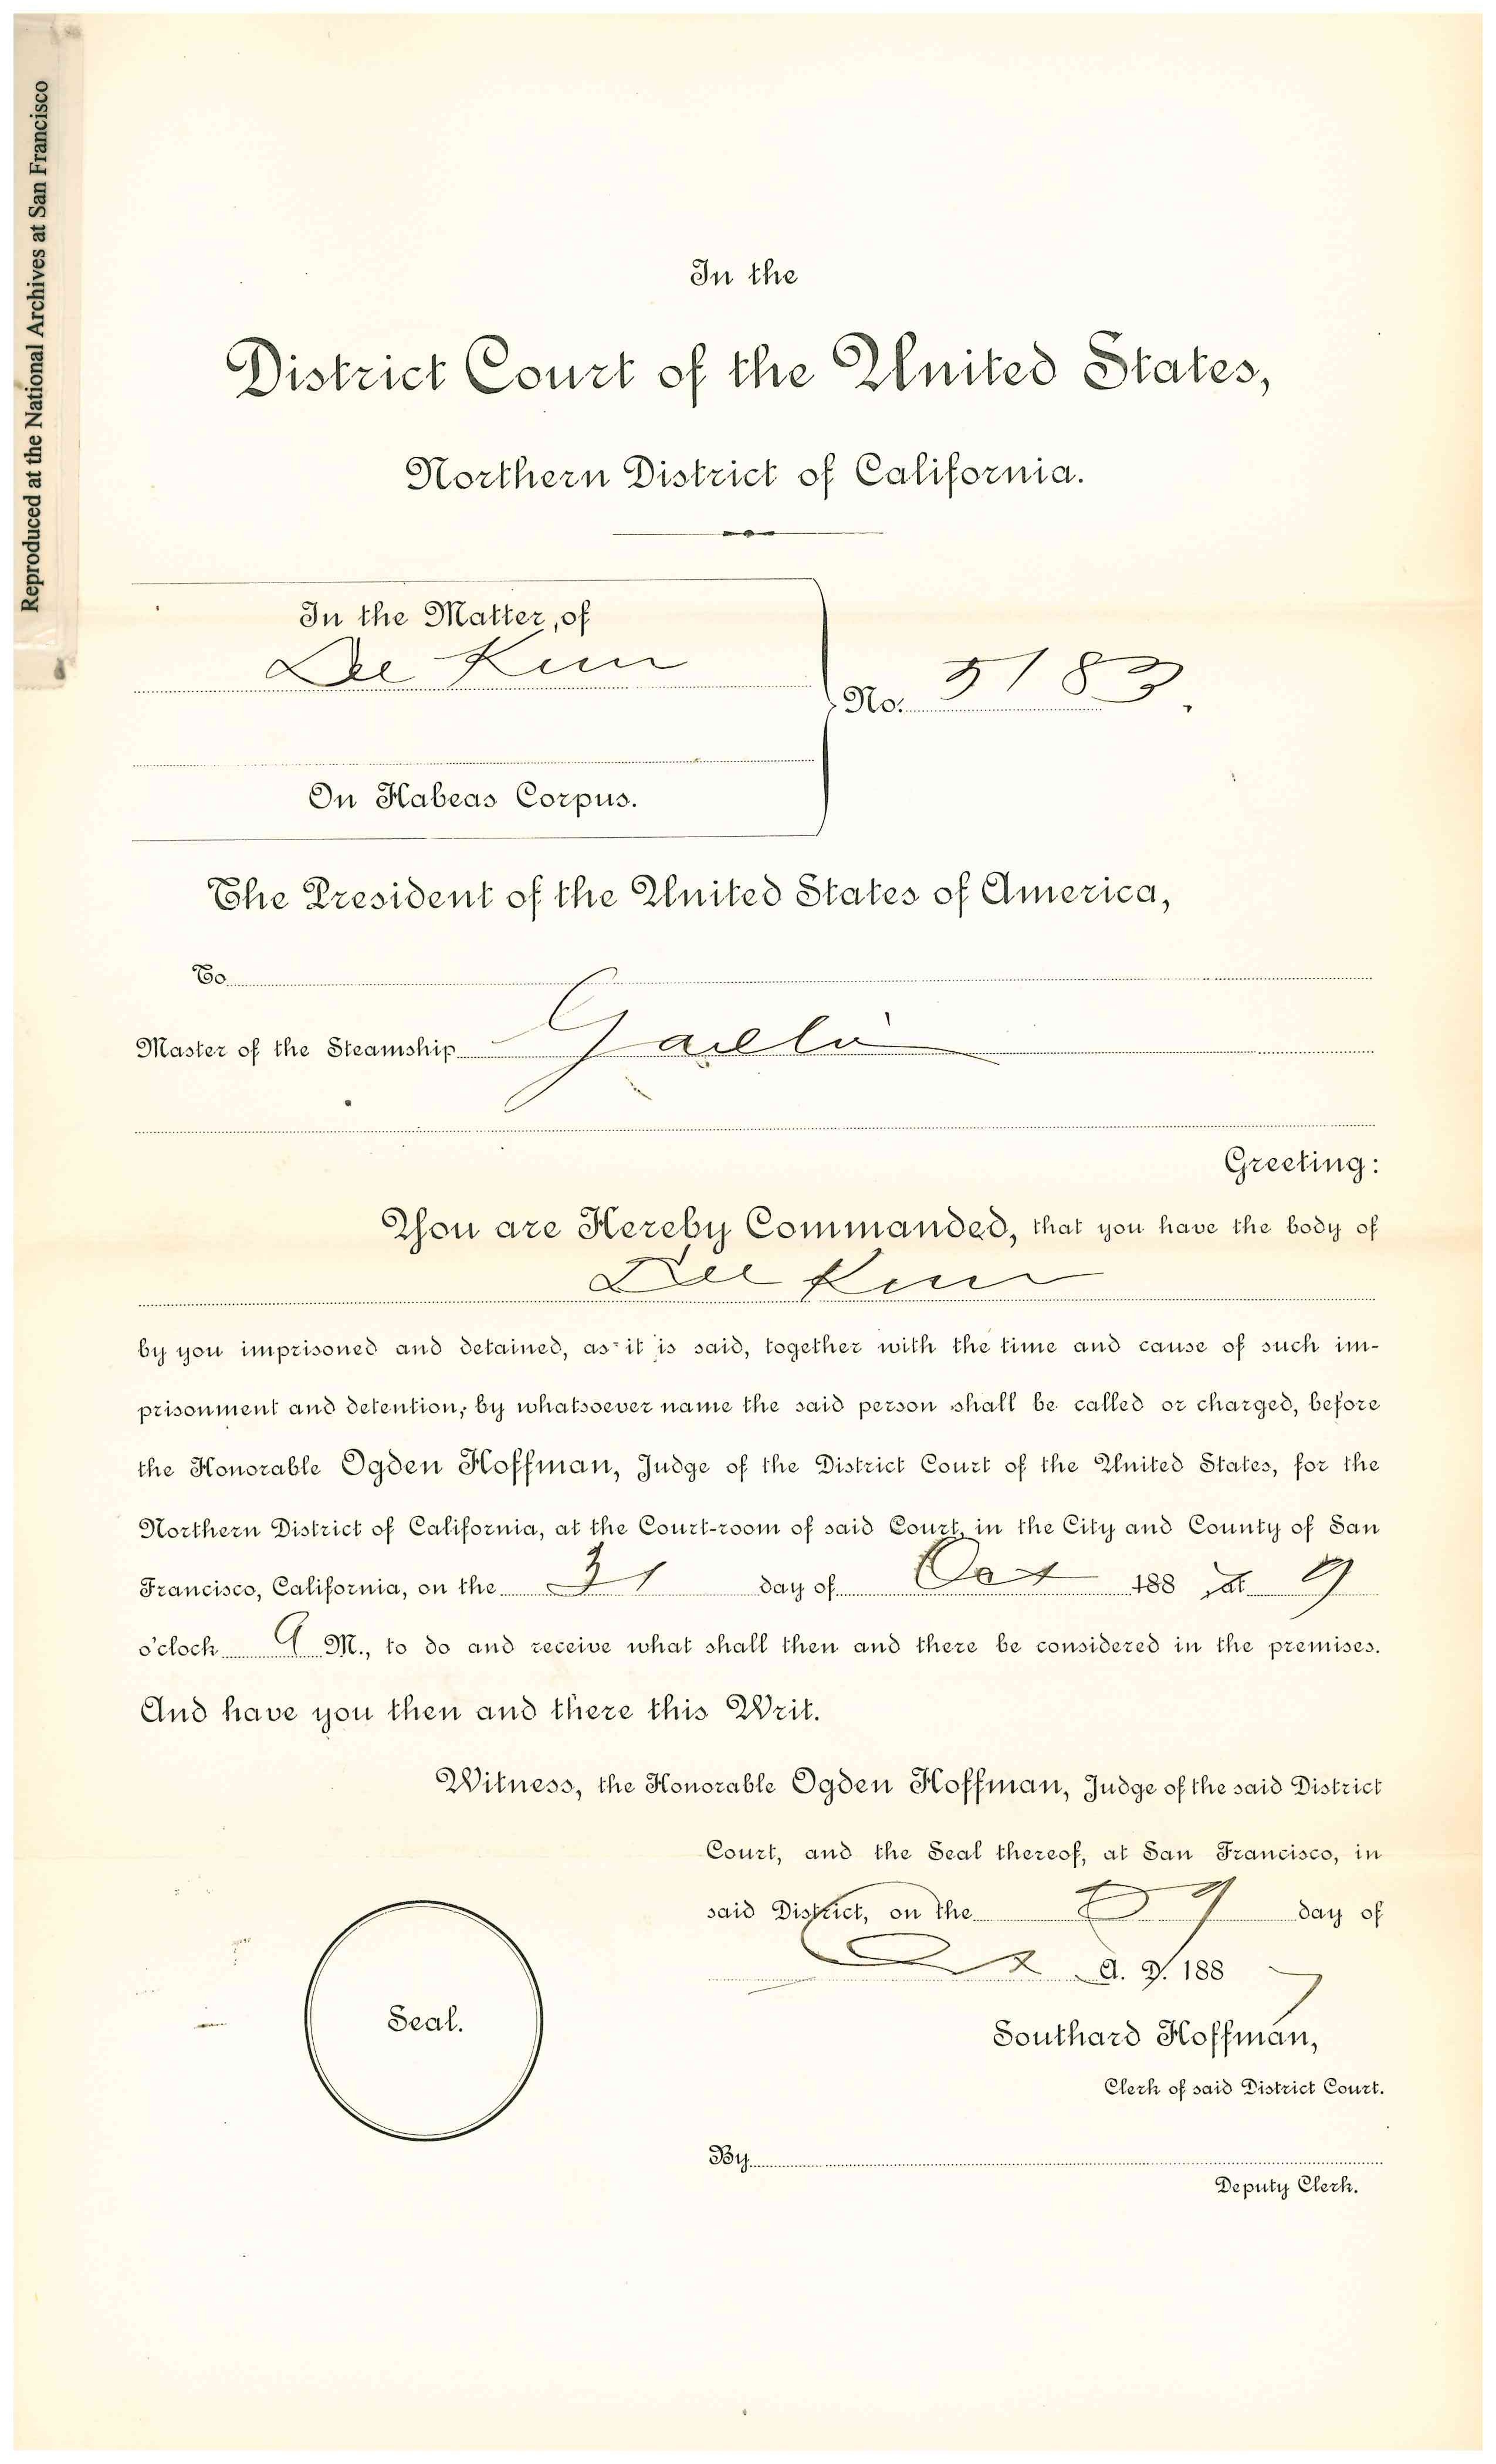 Reproduced at the National Archives at San Francisco
In the
District Court of the United States,
Northern District of California.
In the Matter of
Lee Kim
No. 5183.
On Habeas Corpus.
The President of the United States of America,
To
Master of the Steamship Gaelic
Greeting:
You are Hereby Commanded, that you have the body of
Lee Kim
by you imprisoned and detained, as it is said, together with the time and cause of such im-
prisonment and detention, by whatsoever name the said person shall be called or charged, before
the Honorable Ogden Hoffman, Judge of the District Court of the United States, for the
Northern District of California, at the Court-room of said Court, in the City and County of San
Francisco, California, on the 31 day of Oct 188 at 9
o'clock A M., to do and receive what shall then and there be considered in the premises.
And have you then and there this Writ.
Witness, the Honorable Ogden Hoffman, Judge of the said District
Court, and the Seal thereof, at San Francisco, in
said District, on the day of
Oct A. D. 1887
Seal.
Southard Hoffman,
Clerk of said District Court.
By
Deputy Clerk.